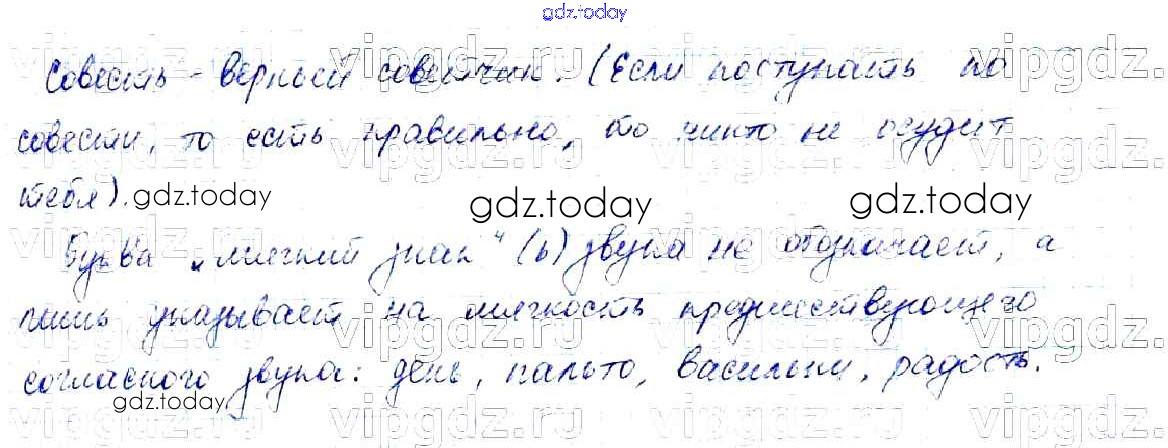 gdz.today
Совесть - верный советчик. (Если поступать по
совести, то есть правильно, то никто не осудит
тебя).
gdz.today
gdz.today
gdz.today
Буква „мягкий знак" (ь) звука не обозначает, а
лишь указывает на мягкость предшествующего
согласного звука: день, пальто, васильки, радость.
gdz.today
gdz.today
vipgdz.ru
vipgdz.ru
vipgdz.ru
vipgdz.